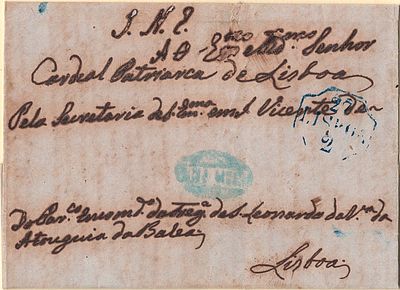 S. N. R.
A O Em.mo e Rmo. Senhor
Cardeal Patriarca de Lisboa
Pela Secretaria de S. Em.ma em S. Vicente da
27
LISBOA
2
Do Par.co Encomd.o da Freg.a de S. Leonardo da V.a da
Atouguia da Balea
Lisboa